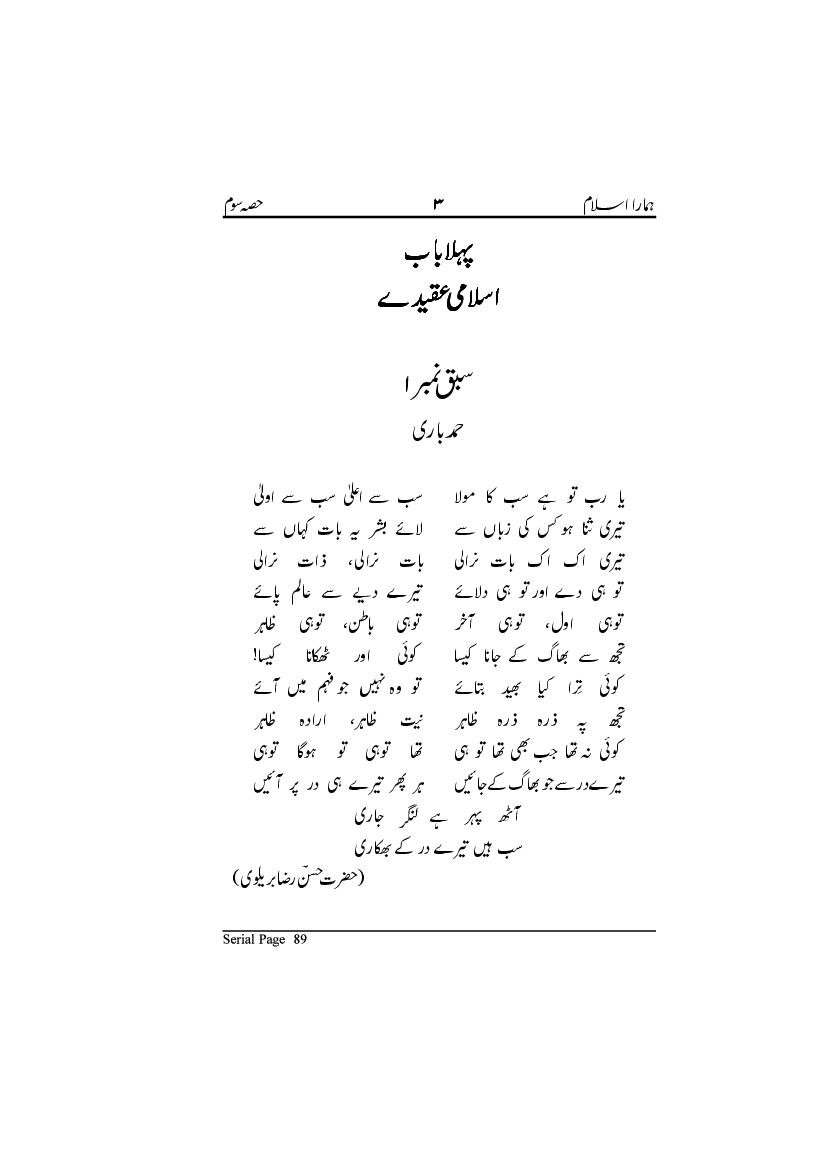 ہمارا اسلام ۳ حصہ سوم
پہلا باب
اسلامی عقیدے
سبق نمبر ۱
حمد باری
یا رب تو ہے سب کا مولا سب سے اعلیٰ سب سے اولیٰ
تیری ثنا ہو کس کی زباں سے لائے بشر یہ بات کہاں سے
تیری اک اک بات نرالی بات نرالی، ذات نرالی
تو ہی دے اور تو ہی دلائے تیرے دیے سے عالم پائے
توہی اول، توہی آخر توہی باطن، توہی ظاہر
تجھ سے بھاگ کے جانا کیسا کوئی اور ٹھکانا کیسا!
کوئی تِرا کیا بھید بتائے تو وہ نہیں جو فہم میں آئے
تجھ پہ ذرہ ذرہ ظاہر نیت ظاہر، ارادہ ظاہر
کوئی نہ تھا جب بھی تھا تو ہی تھا توہی تو ہوگا توہی
تیرے در سے جو بھاگ کے جائیں ہر پھر تیرے ہی در پر آئیں
آٹھ پہر ہے لنگر جاری
سب ہیں تیرے در کے بھکاری
(حضرت حسنؔ رضا بریلوی)
Serial Page 89